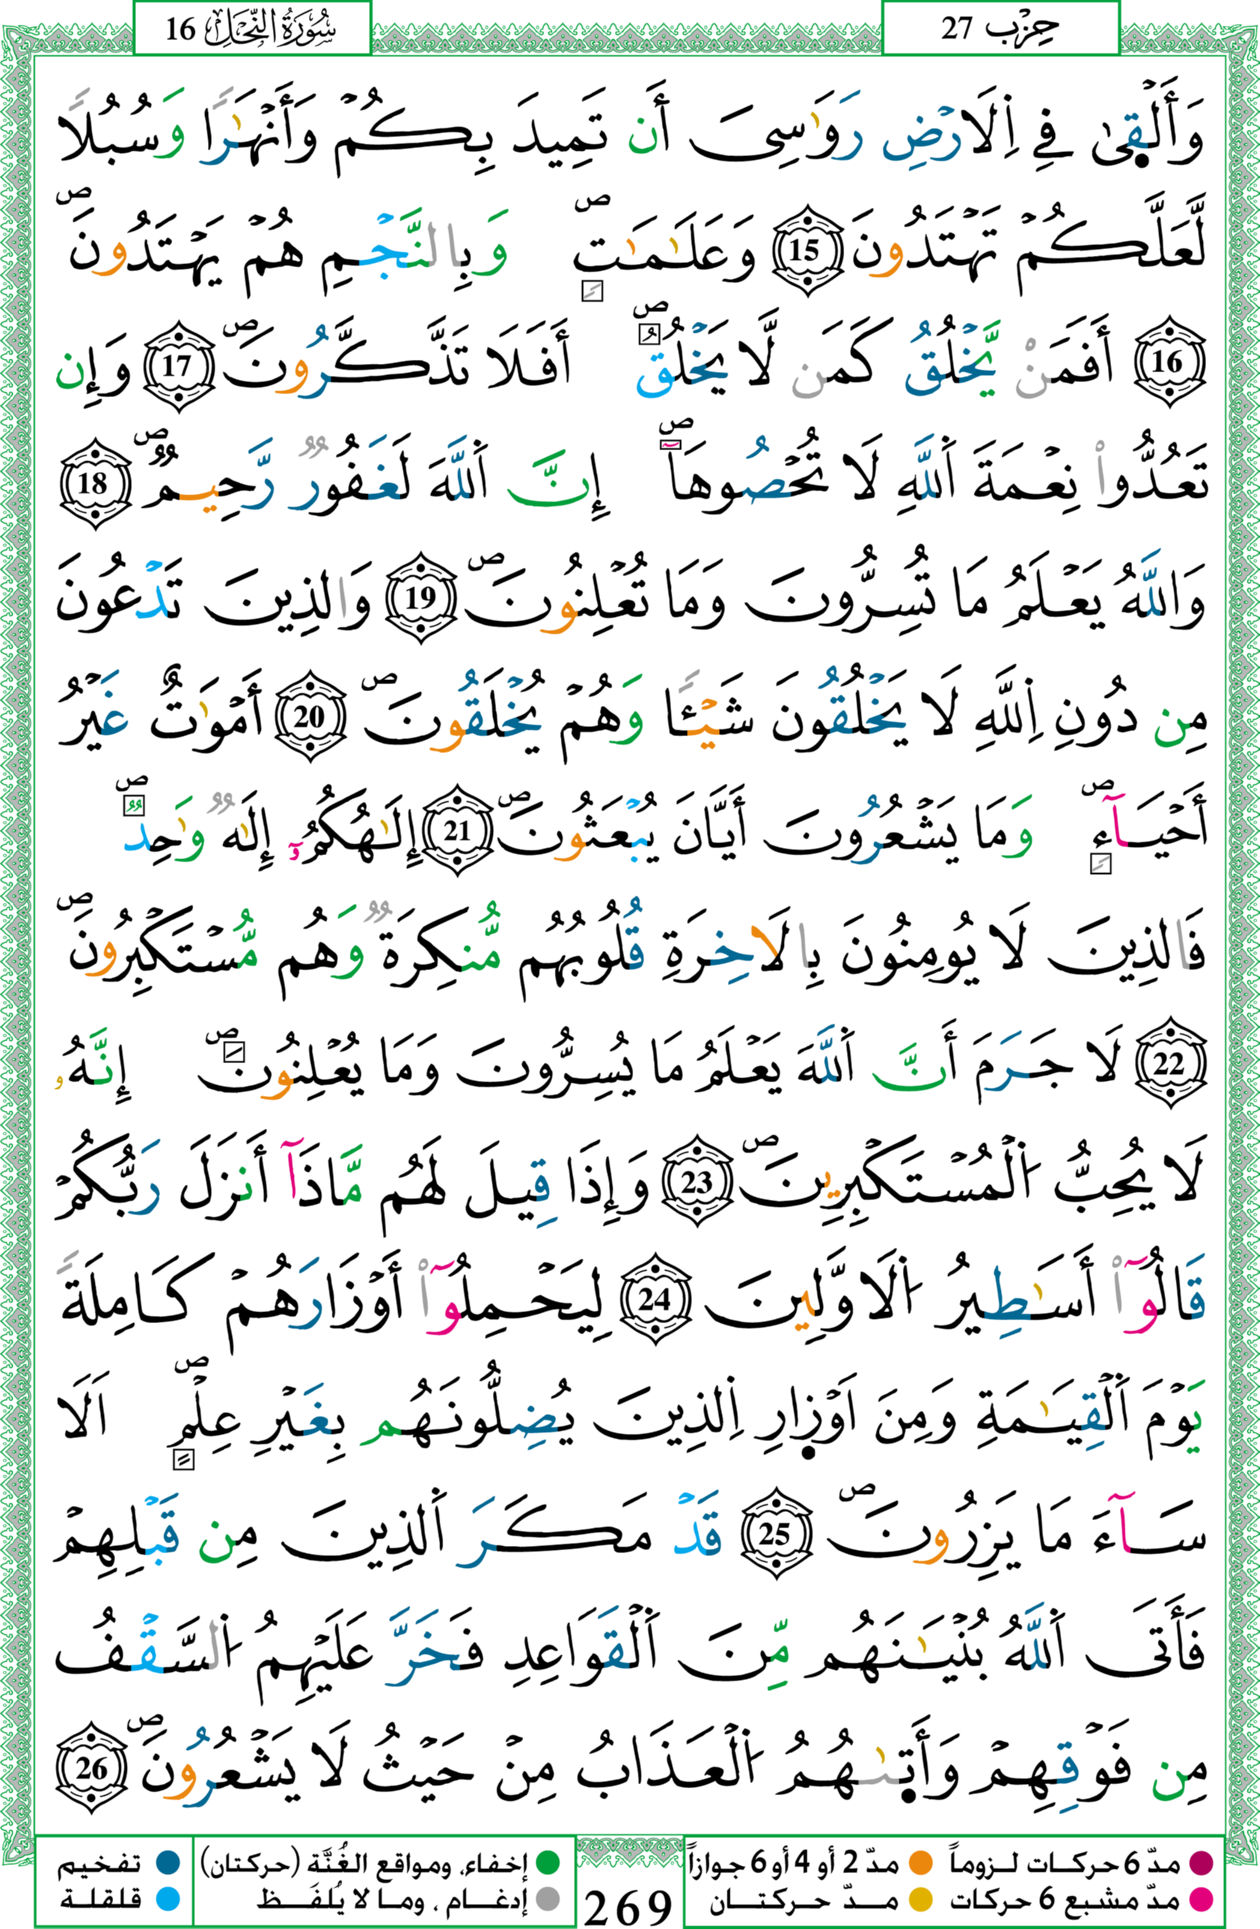 سُورَةُ النَّحْلِ 16
حِزْب 27
وَأَلْقٜىٰ فِے اِلَارْضِ رَوَٰسِىَ أَن تَمِيدَ بِكُمْ وَأَنْهَٰرًا وَسُبُلًا
لَّعَلَّكُمْ تَهْتَدُونَۖ 15 وَعَلَٰمَٰتٍۖ وَبِالنَّجْمِ هُمْ يَهْتَدُونَۖ
16 أَفَمَنْ يَّخْلُقُ كَمَن لَّا يَخْلُقُۖ أَفَلَا تَذَّكَّرُونَۖ 17 وَإِن
تَعُدُّواْ نِعْمَةَ اَللَّهِ لَا تُحْصُوهَآۖ إِنَّ اَللَّهَ لَغَفُورٌ رَّحِيمٌۖ 18
وَاللَّهُ يَعْلَمُ مَا تُسِرُّونَ وَمَا تُعْلِنُونَۖ 19 وَالذِينَ تَدْعُونَ
مِن دُونِ اِللَّهِ لَا يَخْلُقُونَ شَيْـًٔا وَهُمْ يُخْلَقُونَۖ 20 أَمْوَٰتٌ غَيْرُ
أَحْيَآءٍۖ وَمَا يَشْعُرُونَ أَيَّانَ يُبْعَثُونَۖ 21 إِلَٰهُكُمُۥٓ إِلَٰهٌ وَٰحِدٌۖ
فَالذِينَ لَا يُومِنُونَ بِالَاخِرَةِ قُلُوبُهُم مُّنكِرَةٌ وَهُم مُّسْتَكْبِرُونَۖ
22 لَا جَرَمَ أَنَّ اَللَّهَ يَعْلَمُ مَا يُسِرُّونَ وَمَا يُعْلِنُونَۖ إِنَّهُۥ
لَا يُحِبُّ اُلْمُسْتَكْبِرِينَۖ 23 وَإِذَا قِيلَ لَهُم مَّاذَآ أَنزَلَ رَبُّكُمْ
قَالُوٓاْ أَسَٰطِيرُ اُلَاوَّلِينَ 24 لِيَحْمِلُوٓاْ أَوْزَارَهُمْ كَامِلَةً
يَوْمَ اَلْقِيَٰمَةِ وَمِنَ اَوْزٜارِ اِلذِينَ يُضِلُّونَهُم بِغَيْرِ عِلْمٍۖ اَلَا
سَآءَ مَا يَزِرُونَۖ 25 قَدْ مَكَرَ اَلذِينَ مِن قَبْلِهِمْ
فَأَتَى اَللَّهُ بُنْيَٰنَهُم مِّنَ اَلْقَوَاعِدِ فَخَرَّ عَلَيْهِمُ اُلسَّقْفُ
مِن فَوْقِهِمْ وَأَتٜىٰهُمُ اُلْعَذَابُ مِنْ حَيْثُ لَا يَشْعُرُونَۖ 26
مدّ 6 حركات لـزومـاً مدّ 2 أو 4 أو 6 جوازاً إخفاء، ومواقع الغُنَّة (حركتان) تفخيم
مدّ مشبع 6 حركات مـدّ حـركـتـان إدغـام ، ومـا لا يُلفَـظ قلقلة
269